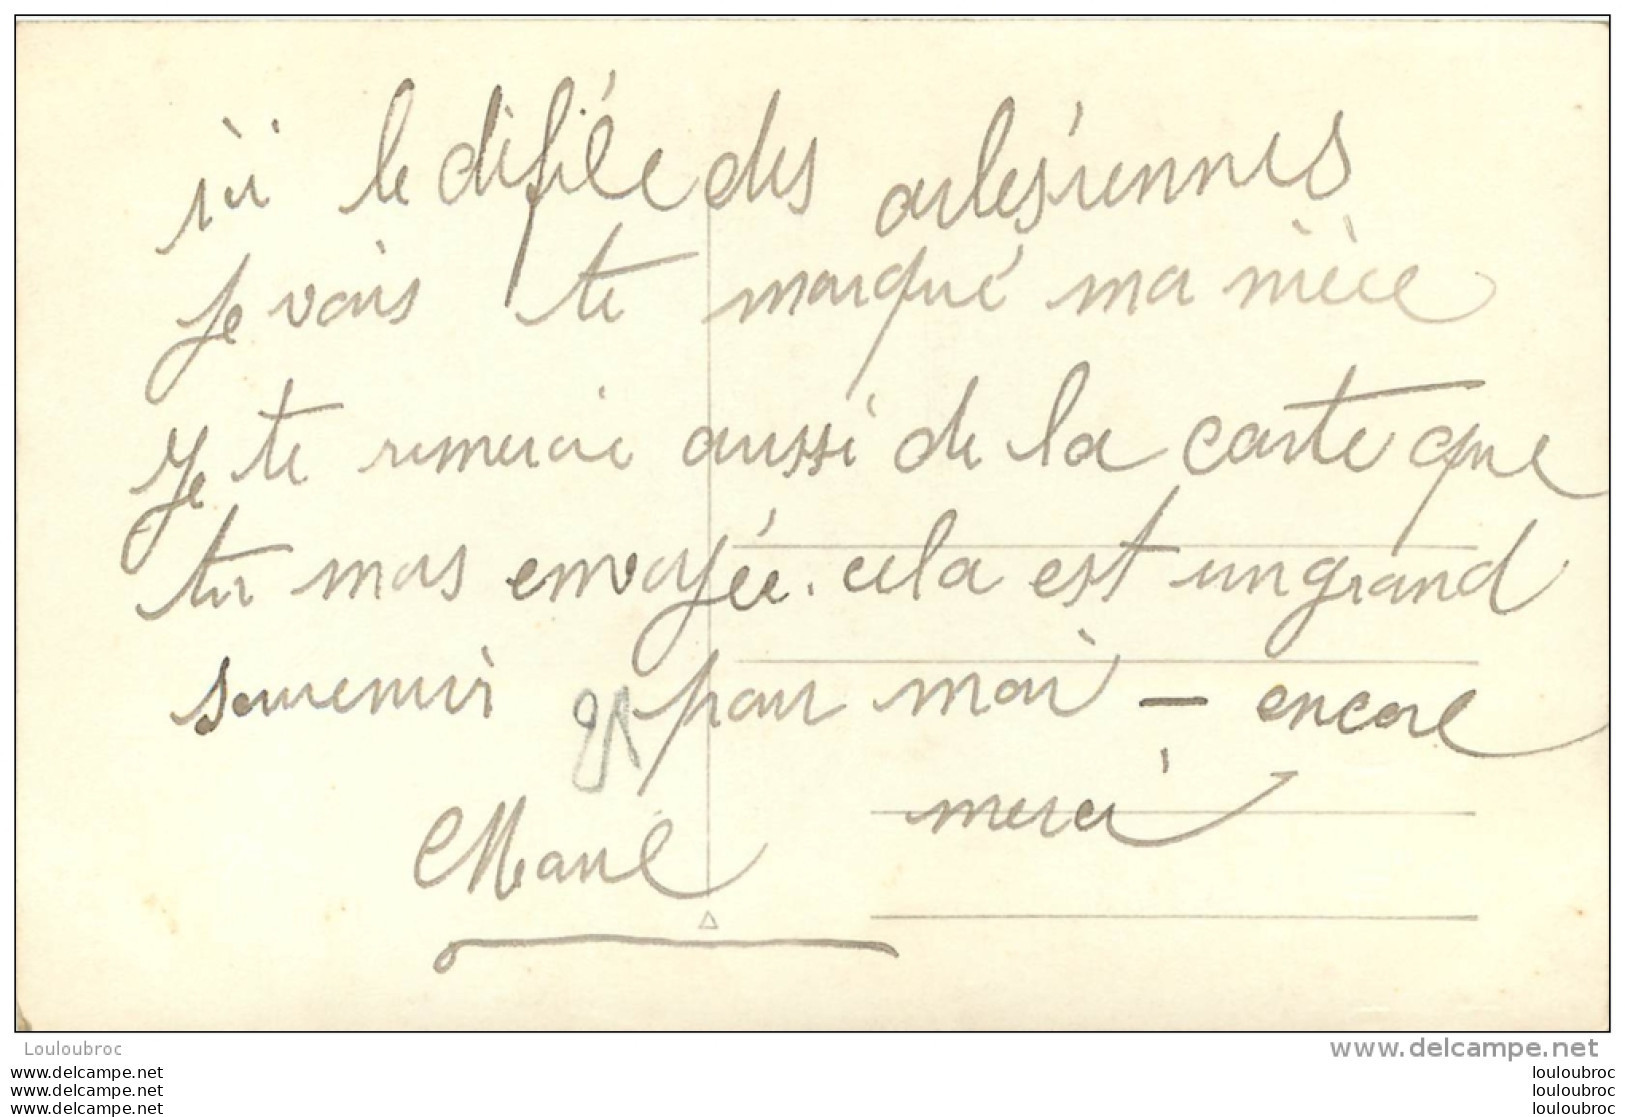 ici le défilé des arlesiennes
je vais te marqué ma nièce
Je te remercie aussi de la carte que
tu mas envoyée. cela est un grand
souvenir pour moi – encore
merci
Louloubroc
www.delcampe.net
www.delcampe.net louloubroc
www.delcampe.net louloubroc
www.delcampe.net louloubroc